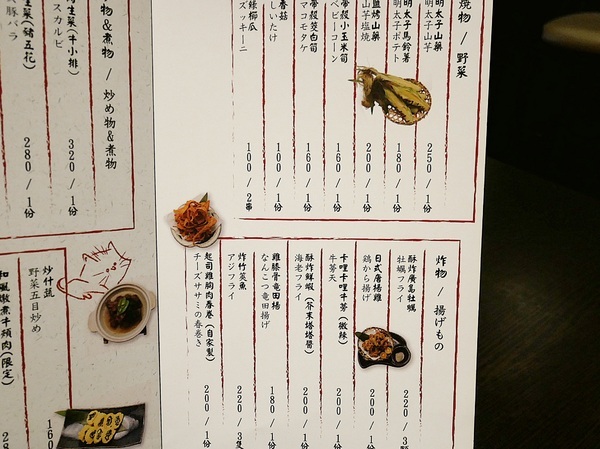 燒物 / 野菜
明太子山藥
明太子山芋
250 / 1份
明太子馬鈴薯
明太子ポテト
180 / 1份
鹽烤山藥
山芋塩焼
200 / 1份
帶殼小玉米筍
ベビーコーン
160 / 1份
帶殼茭白筍
マコモタケ
160 / 1份
香菇
しいたけ
100 / 1份
綠櫛瓜
ズッキーニ
100 / 2串
炸物 / 揚げもの
酥炸廣島牡蠣
牡蠣フライ
220 / 3
日式唐揚雞
鶏から揚げ
200 / 1份
卡哩卡哩牛蒡 (微辣)
牛蒡天
200 / 1份
酥炸鮮蝦 (芥末塔塔醬)
海老フライ
200 / 1份
雞膝骨竜田揚
なんこつ竜田揚げ
180 / 1份
炸竹筴魚
アジフライ
220 / 3隻
起司雞胸肉春卷 (自家製)
チーズササミの春巻き
200 / 1份
物&煮物 / 炒め物&煮物
生菜 (牛小排)
スカルビ
320 / 1份
生菜 (豬五花)
豚バラ
280 / 1份
炒什蔬
野菜五目炒め
160
和風燉煮牛頰肉 (限定)
28